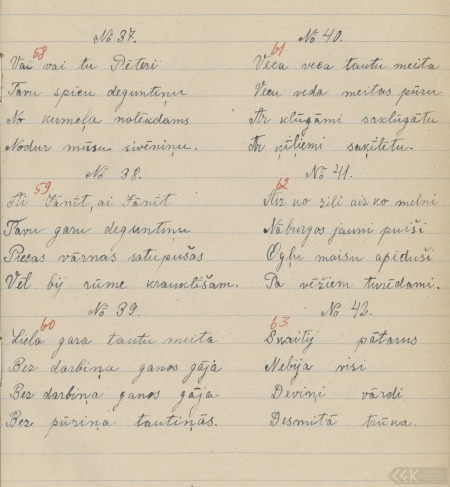 No 37.
58
Vai vai tu Pēteri
Tavu spicu deguntiņu
No kumeļa nolēkdams
Nodur mūsu sivēniņu.
No 38.
59
Ai Jānīt, ai Jānīt
Tavu garu deguntiņu
Piecas vārnas satupušas
Vēl bij rūme krauklīšam.
No 39.
60
Liela gara tautu meita
Bez darbiņa ganos gāja
Bez darbiņa ganos gāja
Bez pūriņa tautiņās.
No 40.
61
Veca veca tautu meita
Vecu veda meitas pūru
Ar klūgām saklūgātu
Ar ķīļiem saķīlētu.
No 41.
62
Aiz ko zili aiz ko melni
Naburgas jauni puiši
Ogļu maisu apēduši
Pa vēžiem turīdami.
No 42.
63
Skaitīj pātarus
Nebija visi
Deviņi vārdi
Desmitā trūka.